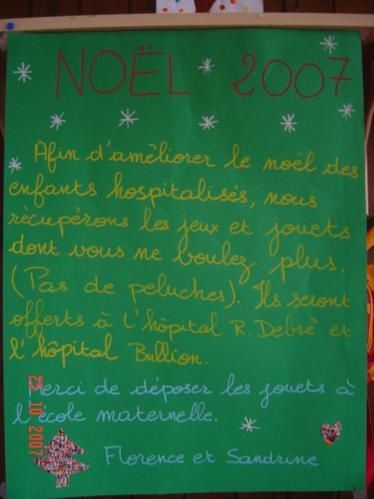 NOËL 2007
Afin d'améliorer le noël des
enfants hospitalisés, nous
récupérons les jeux et jouets
dont vous ne voulez plus.
(Pas de peluches). Ils seront
offerts à l'hôpital R. Debré et
l'hôpital Bullion.
Merci de déposer les jouets à
l'école maternelle.
Florence et Sandrine
25 10 2007